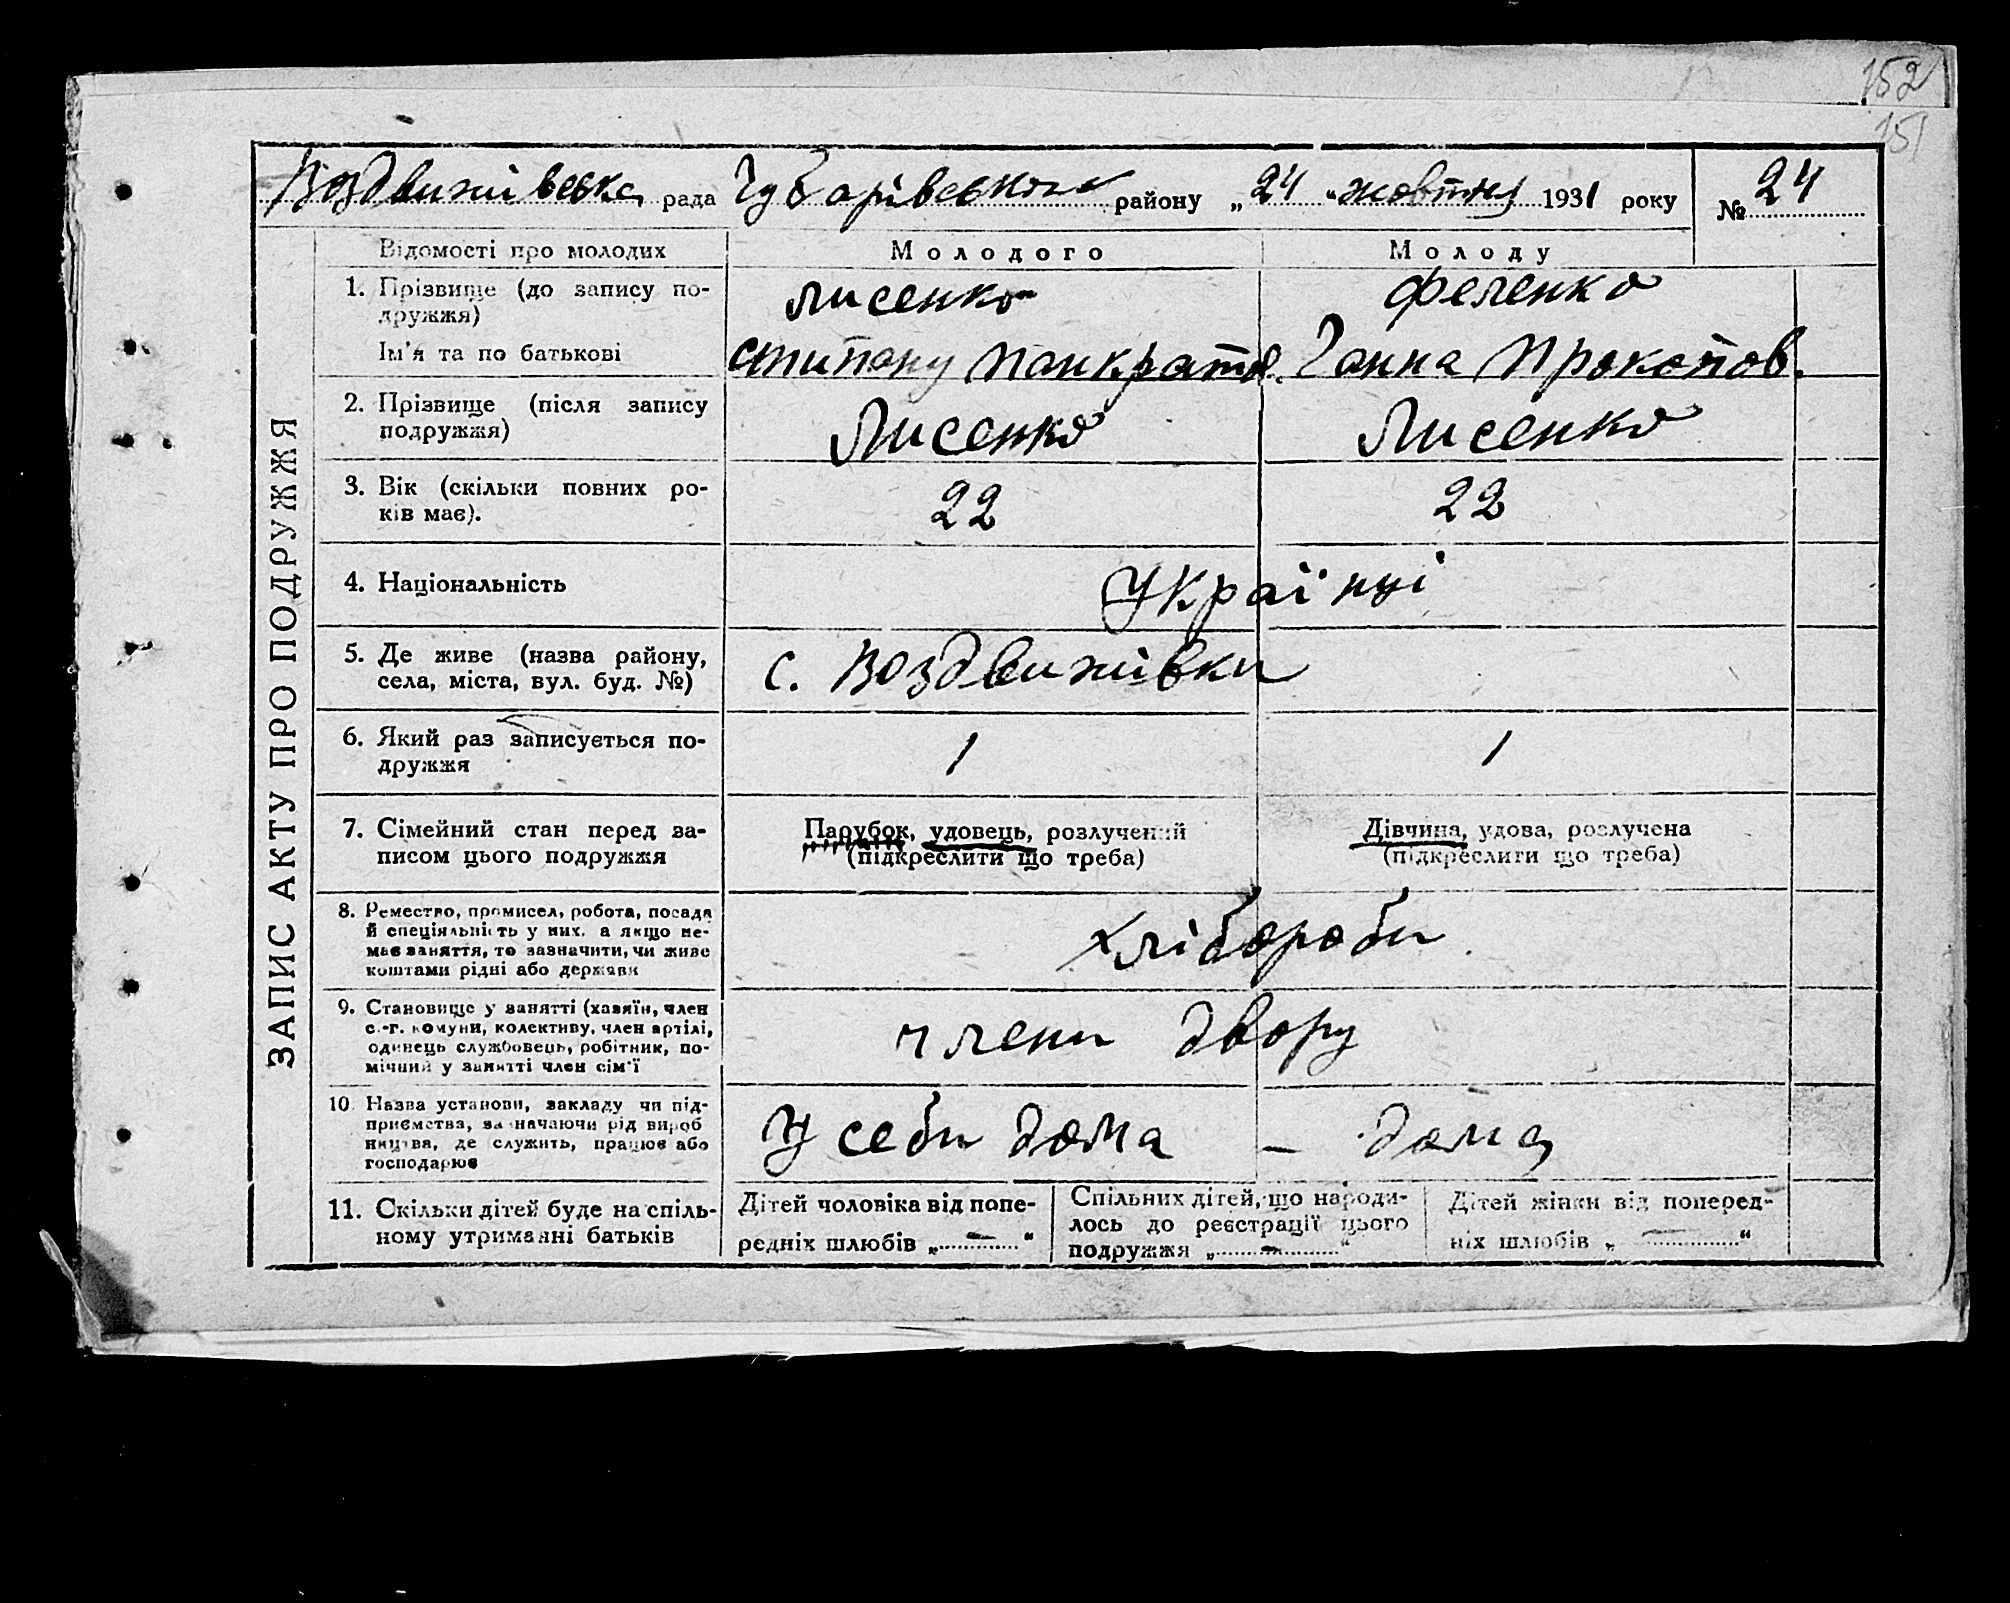 152
151
Воздвижівська рада Губарівського району „24" жовтня 1931 року № 24
ЗАПИС АКТУ ПРО ПОДРУЖЖЯ
Відомості про молодих Молодого Молоду
1. Прізвище (до запису по-
дружжя) Лисенко Феленко
Ім'я та по батькові Стипану Панкратов. Ганна Прокопов.
2. Прізвище (після запису
подружжя) Лисенко Лисенко
3. Вік (скільки повних ро-
ків має). 22 22
4. Національність Українці
5. Де живе (назва району,
села, міста, вул. буд. №) с. Воздвижівки
6. Який раз записується по-
дружжя 1 1
7. Сімейний стан перед за-
писом цього подружжя
Парубок, удовець, розлучений
(підкреслити що треба)
Дівчина, удова, розлучена
(підкреслити що треба)
8. Ремество, промисел, робота, посада
й спеціяльність у них, а якщо не-
має заняття, то зазначити, чи живе
коштами рідні або держави
хлібороби
9. Становище у занятті (хазяїн, член
с.-г. комуни, колективу, член артілі,
одинець службовець, робітник, по-
мічний у занятті член сім'ї
члени двору
10. Назва установи, закладу чи під-
приємства, зазначаючи рід вироб
ництва, де служить, працює або
господарює
У себи дома — дома
11. Скільки дітей буде на спіль-
ному утриманні батьків
Дітей чоловіка від попе-
редніх шлюбів „—"
Спільних дітей, що народи-
лось до реєстрації цього
подружжя „—"
Дітей жінки від поперед-
ніх шлюбів „—"